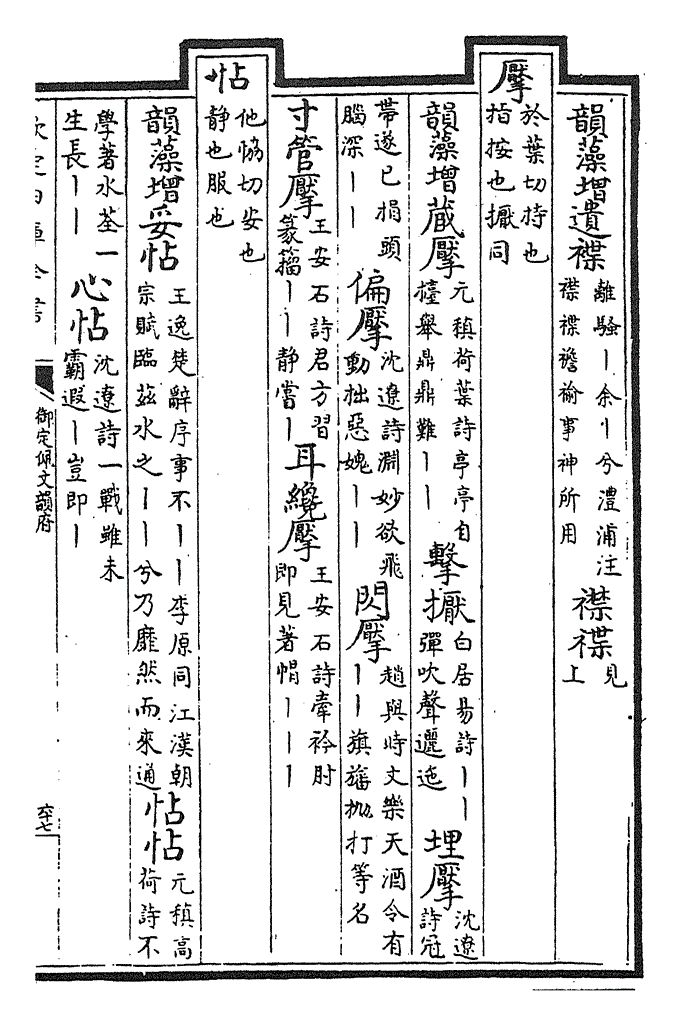 韻藻增遺褋離騷丨余丨兮澧浦注襟褋襜褕事神所用襟褋見上
擪於葉切持也指按也擫同
韻藻增蔵擪元稹荷葉詩亭亭自擡舉鼎鼎難丨丨擊擫白居易詩丨丨彈吹聲邐迤埋擪沈遼詩冠
帶遂已捐頭腦深丨丨偏擪沈遼詩淵妙欲飛動拙惡媿丨丨閃擪趙與時文樂天酒令有丨丨旗旛抛打等名
寸管擪王安石詩君方習篆籀丨丨静嘗丨耳纔擪王安石詩牽衿肘即見著帽丨丨丨
帖他恊切安也静也服也
韻藻增妥帖王逸楚辭序事不丨丨李原同江漢朝宗賦臨兹水之丨丨兮乃靡然而來通帖帖元稹高荷詩不
學著水荃一生長丨丨心帖沈遼詩一戰雖未霸遐丨豈即丨
欽定四庫全書
御定佩文韻府
六十七